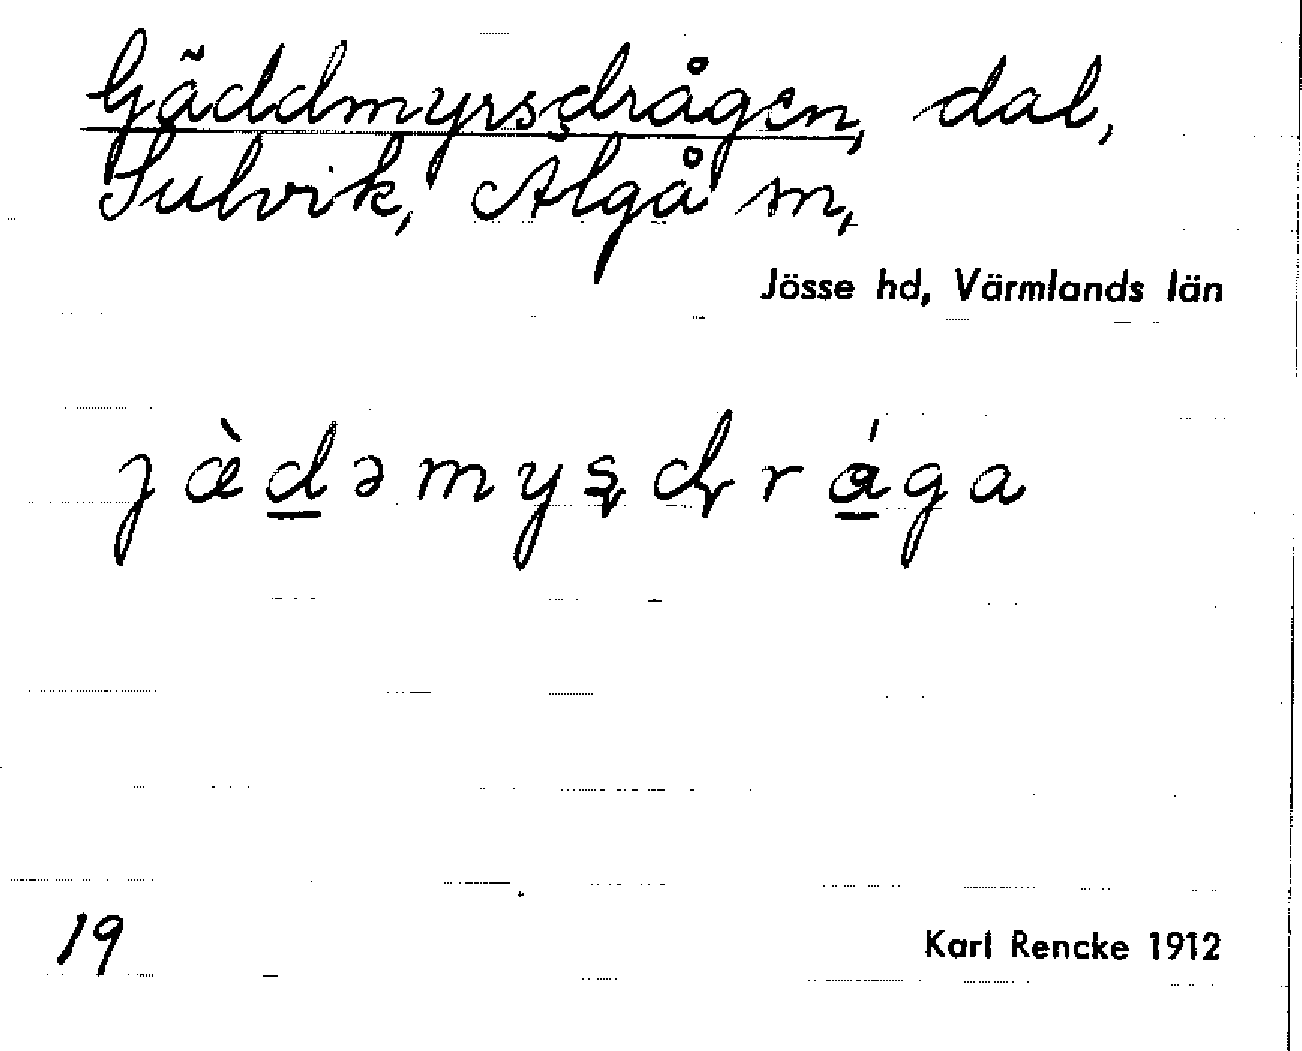 Gäddmyrsdrågen, dal,
Sulvik, Älgå sn,
Jösse hd, Värmlands län
jæ̀d̲əmyʂɖrá̲ga
19
Karl Rencke 1912